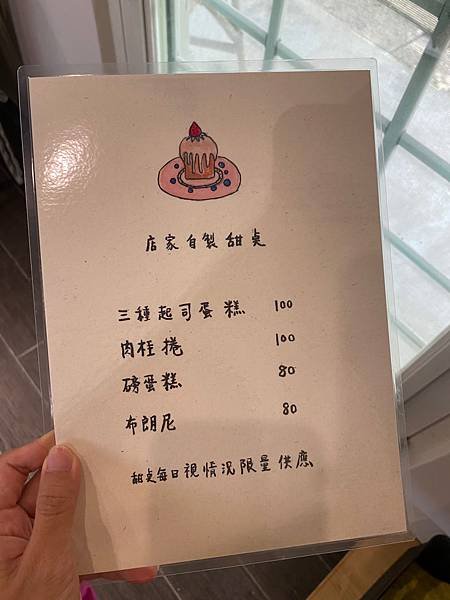 店家自製甜桌
三種起司蛋糕 100
肉桂捲 100
磅蛋糕 80
布朗尼 80
甜桌每日視情況限量供應